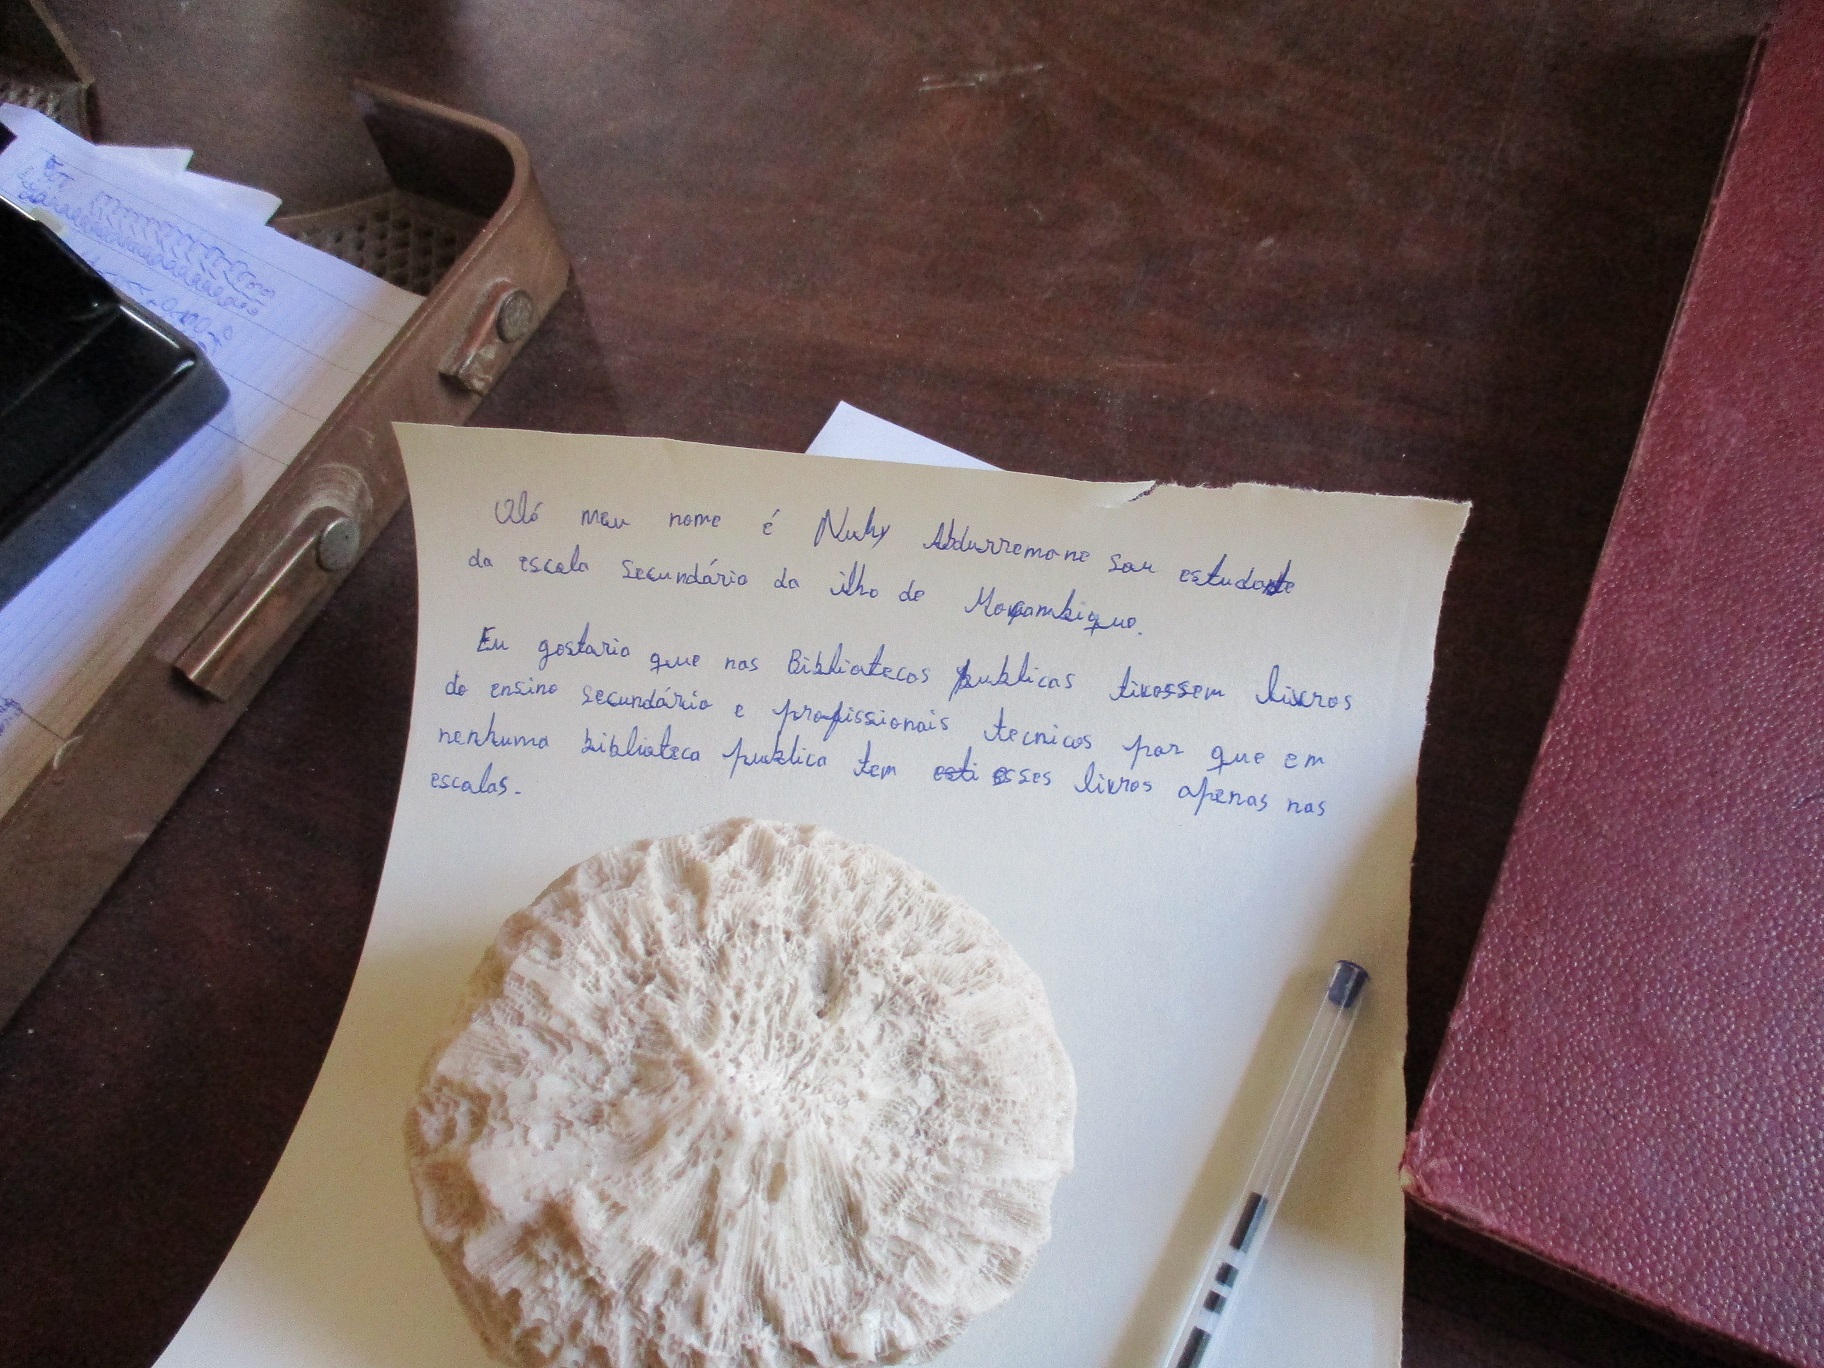 Aló meu nome é Nuhy Abdurremane sou estudante
da escola Secundária da ilha de Moçambique.
Eu gostaria que nas Bibliotecas publicas tivessem livros
do ensino secundário e profissionais tecnicos por que em
nenhuma biblioteca publica tem esti esses livros apenas nas
escolas.